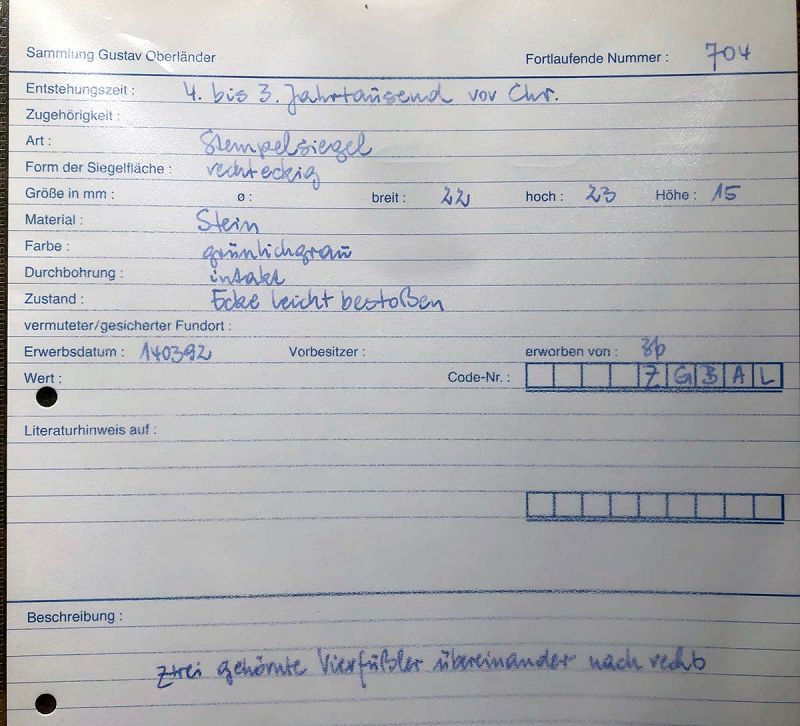 Sammlung Gustav Oberländer Fortlaufende Nummer : 704
Entstehungszeit : 4. bis 3. Jahrtausend vor Chr.
Zugehörigkeit :
Art : Stempelsiegel
Form der Siegelfläche : rechteckig
Größe in mm : ø : breit : 22 hoch : 23 Höhe : 15
Material : Stein
Farbe : grünlichgrau
Durchbohrung : intakt
Zustand : Ecke leicht bestoßen
vermuteter/gesicherter Fundort :
Erwerbsdatum : 140392 Vorbesitzer : erworben von :
Wert : Code-Nr. : ZGBAL
Literaturhinweis auf :
Beschreibung :
zwei gehörnte Vierfüßler übereinander nach rechts